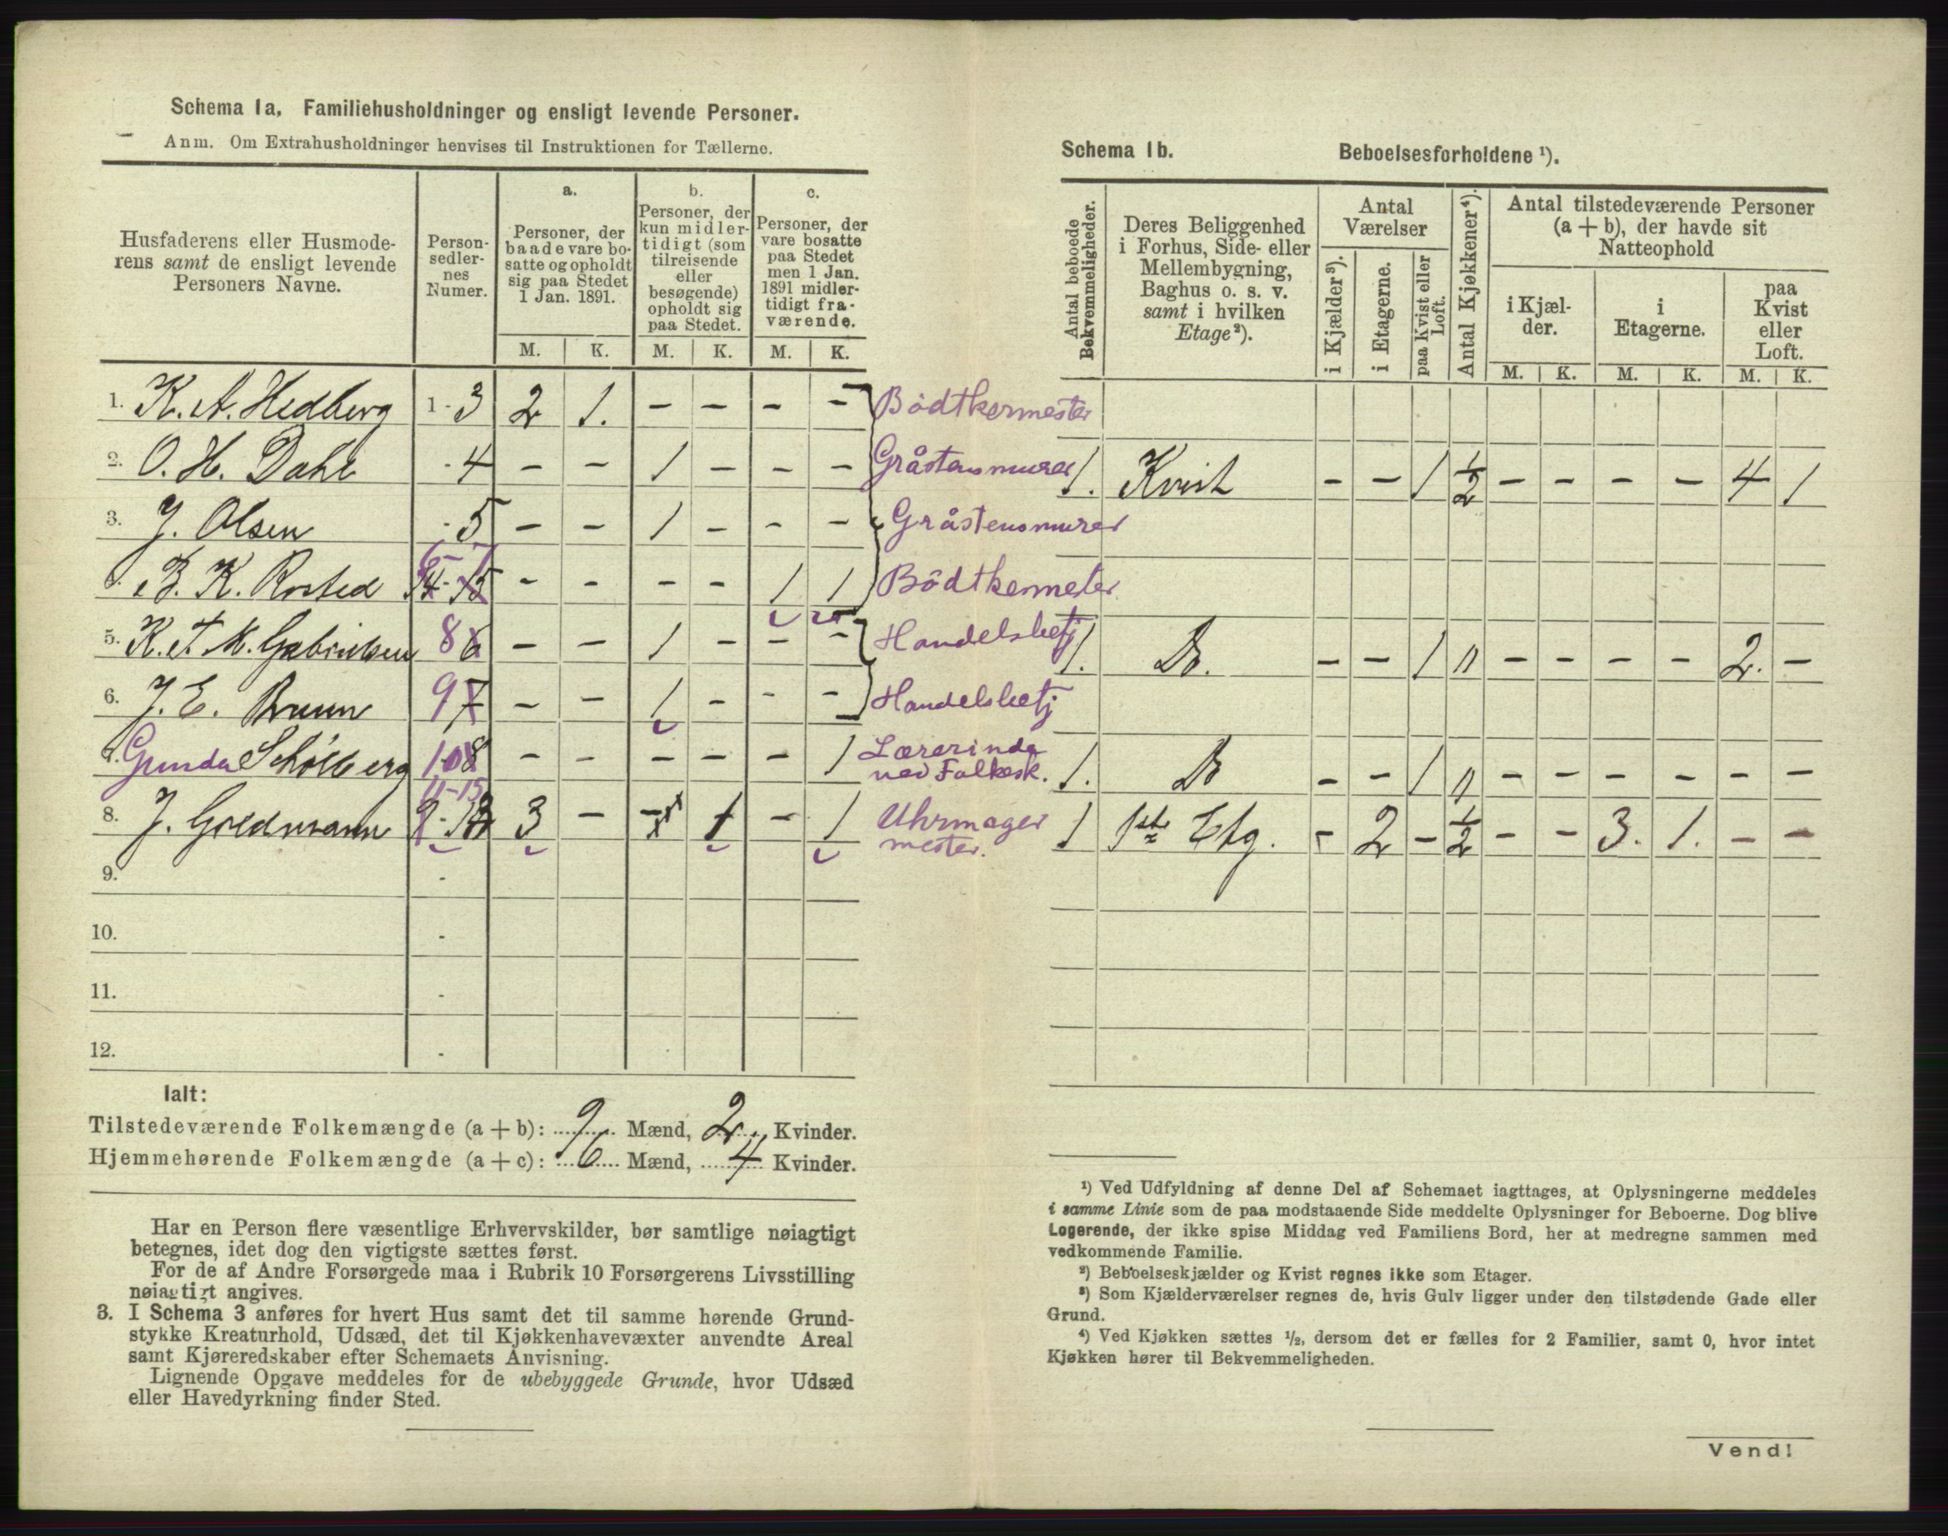 Schema 1a. Familiehusholdninger og ensligt levende Personer.
Anm. Om Extrahusholdninger henvises til Instruktionen for Tællerne.
Husfaderens eller Husmoderens samt de ensligt levende Personers Navne.
Personsedlernes Numer.
a.
Personer, der baade vare bosatte og opholdt sig paa Stedet 1 Jan. 1891.
b.
Personer, der kun midlertidigt (som tilreisende eller besøgende) opholdt sig paa Stedet.
c.
Personer, der vare bosatte paa Stedet men 1 Jan. 1891 midlertidigt fraværende.
M. K. M. K. M. K.
1. K. A. Hedberg 1-3 2 1. – – – – Bödtkermester
2. O. H. Dahl -4 – – 1 – – – Gråstensmurer
3. J. Olsen -5 – – 1 – – – Gråstensmurer
B. K. Rosted 6-7 – – – – 1 1 Bödtkermeter
5. K. F. M. Gabrielsen 8 – – 1 – – – Handelsbetj
6. J. E. Bruun 9 – – 1 – – – Handelsbetj
Gunda Schølberg 10 – – – – – 1 Lærerinde ved Folkesk.
8. J. Goldmann 11-15 3 – – 1 – 1 Uhrmager mester.
9. -
10. -
11. -
12. -
Ialt:
Tilstedeværende Folkemængde (a+b): 9 Mænd, 2 Kvinder.
Hjemmehørende Folkemængde (a+c): 6 Mænd, 4 Kvinder.
Har en Person flere væsentlige Erhvervskilder, bør samtlige nøiagtigt
betegnes, idet dog den vigtigste sættes først.
For de af Andre Forsørgede maa i Rubrik 10 Forsørgerens Livsstilling
nøiagtigt angives.
3. I Schema 3 anføres for hvert Hus samt det til samme hørende Grund-
stykke Kreaturhold, Udsæd, det til Kjøkkenhavevæxter anvendte Areal
samt Kjøreredskaber efter Schemaets Anvisning.
Lignende Opgave meddeles for de ubebyggede Grunde, hvor Udsæd
eller Havedyrkning finder Sted.
Schema 1b. Beboelsesforholdene ¹).
Antal beboede Bekvemmeligheder.
Deres Beliggenhed i Forhus, Side- eller Mellembygning, Baghus o. s. v. samt i hvilken Etage²).
Antal Værelser
i Kjælder³).
i Etagerne.
paa Kvist eller Loft.
Antal Kjøkkener⁴).
Antal tilstedeværende Personer (a+b), der havde sit Natteophold
i Kjælder.
i Etagerne.
paa Kvist eller Loft.
M. K. M. K. M. K.
1. Kvist – – 1 ½ – – – – 4 1
1. Do. – – 1 " – – – – 2. –
1. Do – – 1 " – – – – – –
1 1ste Etg. – 2 – ½ – – 3. 1. – –
¹) Ved Udfyldning af denne Del af Schemaet iagttages, at Oplysningerne meddeles
i samme Linie som de paa modstaaende Side meddelte Oplysninger for Beboerne. Dog blive
Logerende, der ikke spise Middag ved Familiens Bord, her at medregne sammen med
vedkommende Familie.
²) Beboelseskjælder og Kvist regnes ikke som Etager.
³) Som Kjælderværelser regnes de, hvis Gulv ligger under den tilstødende Gade eller
Grund.
⁴) Ved Kjøkken sættes ½, dersom det er fælles for 2 Familier, samt 0, hvor intet
Kjøkken hører til Bekvemmeligheden.
Vend!